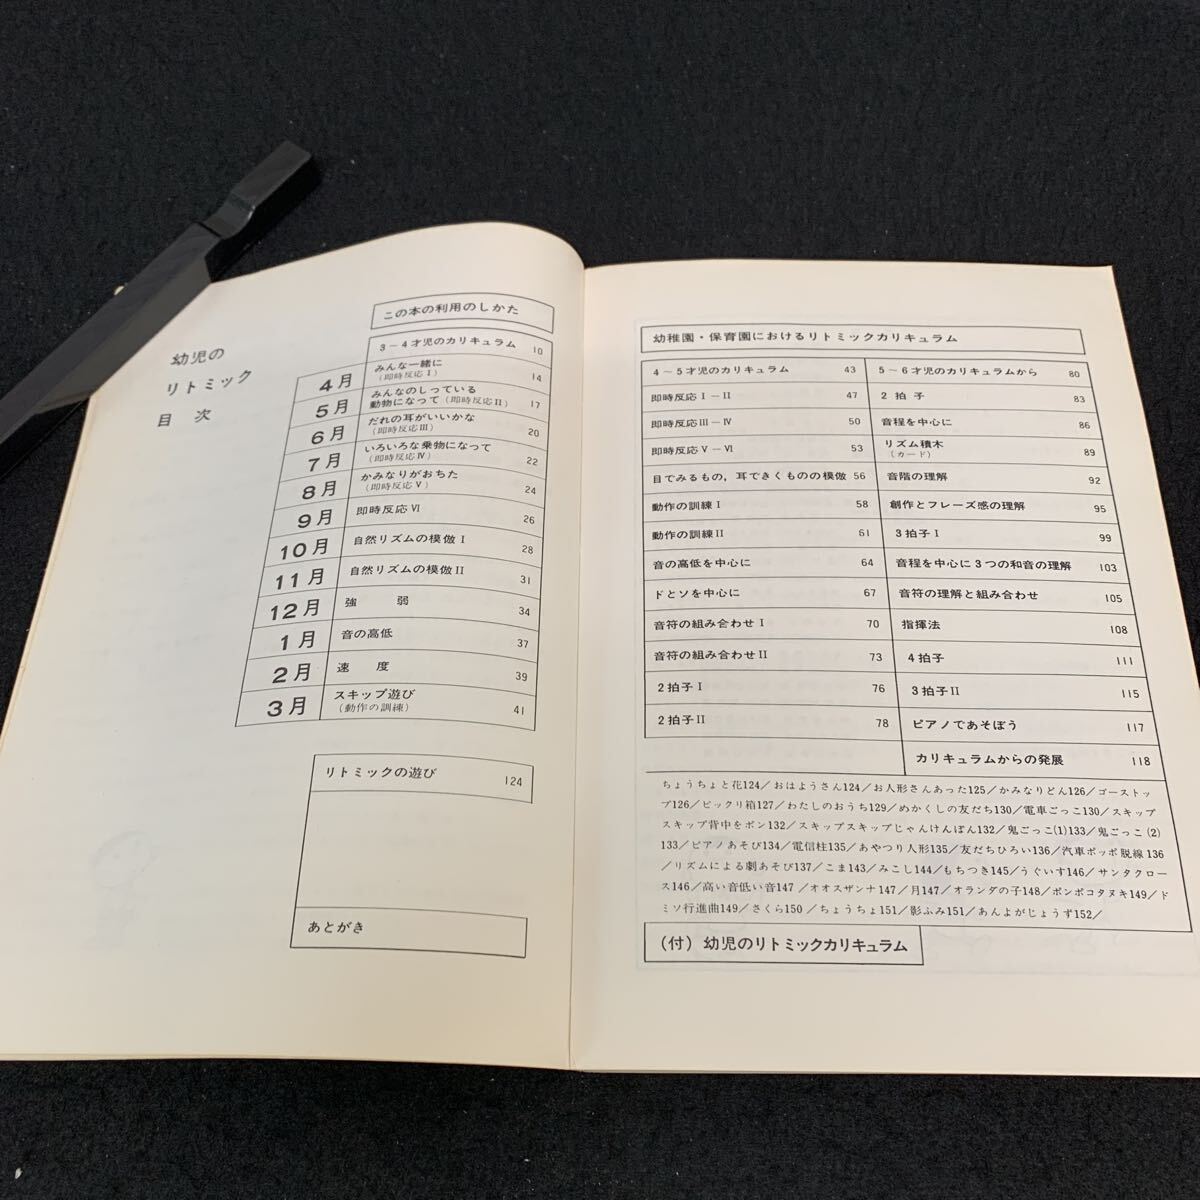 幼児の
リトミック
目　次
この本の利用のしかた
3－4才児のカリキュラム 10
4月 みんな一緒に 14
(即時反応Ⅰ)
5月 みんなのしっている
動物になって(即時反応Ⅱ) 17
6月 だれの耳がいいかな 20
(即時反応Ⅲ)
7月 いろいろな乗物になって 22
(即時反応Ⅳ)
8月 かみなりがおちた 24
(即時反応Ⅴ)
9月 即時反応Ⅵ 26
10月 自然リズムの模倣Ⅰ 28
11月 自然リズムの模倣Ⅱ 31
12月 強　弱 34
1月 音の高低 37
2月 速　度 39
3月 スキップ遊び 41
(動作の訓練)
リトミックの遊び 124
あとがき
幼稚園・保育園におけるリトミックカリキュラム
4～5才児のカリキュラム 43
即時反応Ⅰ－Ⅱ 47
即時反応Ⅲ－Ⅳ 50
即時反応Ⅴ－Ⅵ 53
目でみるもの，耳できくものの模倣 56
動作の訓練Ⅰ 58
動作の訓練Ⅱ 61
音の高低を中心に 64
ドとソを中心に 67
音符の組み合わせⅠ 70
音符の組み合わせⅡ 73
2拍子Ⅰ 76
2拍子Ⅱ 78
5～6才児のカリキュラムから 80
2拍子 83
音程を中心に 86
リズム積木 89
(カード)
音階の理解 92
創作とフレーズ感の理解 95
3拍子Ⅰ 99
音程を中心に3つの和音の理解 103
音符の理解と組み合わせ 105
指揮法 108
4拍子 111
3拍子Ⅱ 115
ピアノであそぼう 117
カリキュラムからの発展 118
ちょうちょと花124／おはようさん124／お人形さんあった125／かみなりどん126／ゴーストッ
プ126／ビックリ箱127／わたしのおうち129／めかくしの友だち130／電車ごっこ130／スキップ
スキップ背中をポン132／スキップスキップじゃんけんぽん132／鬼ごっこ(1)133／鬼ごっこ(2)
133／ピアノあそび134／電信柱135／あやつり人形135／友だちひろい136／汽車ポッポ脱線136
／リズムによる劇あそび137／こま143／みこし144／もちつき145／うぐいす146／サンタクロー
ス146／高い音低い音147／オオスザンナ147／月147／オランダの子148／ポンポコタヌキ149／ド
ミソ行進曲149／さくら150／ちょうちょ151／影ふみ151／あんよがじょうず152／
(付) 幼児のリトミックカリキュラム